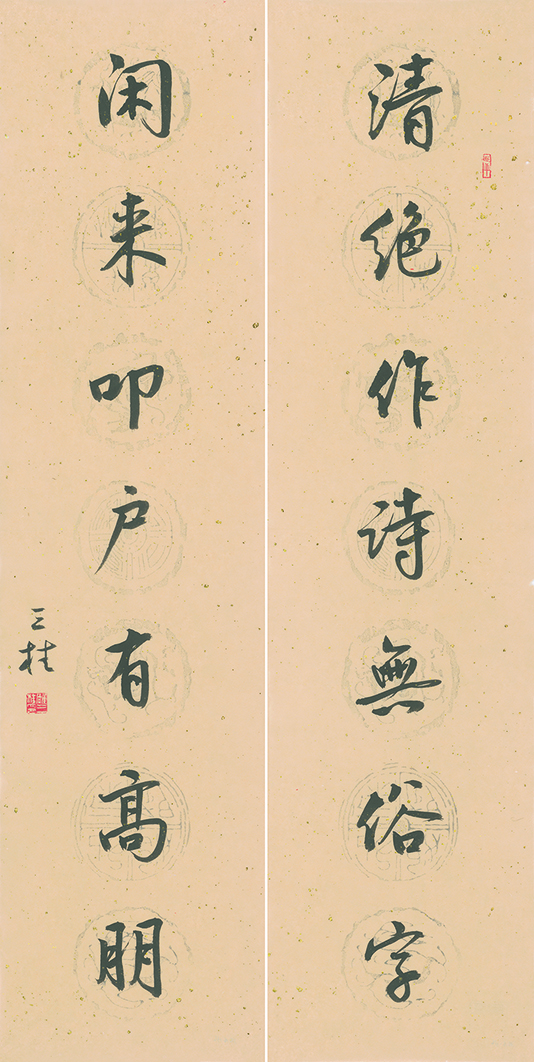 清绝作诗無俗字
闲来叩户有高朋
三桂